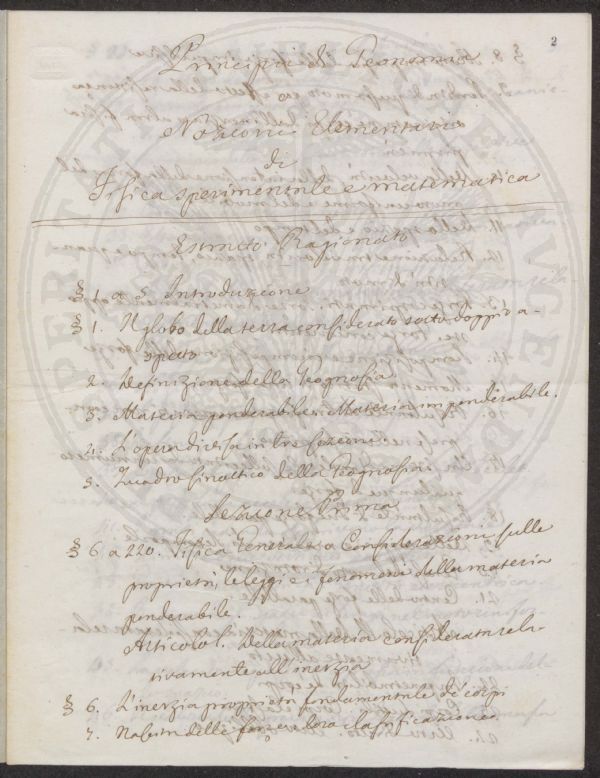 2
Principj di Geonomia
Nozioni Elementari
di
Fisica sperimentale e matematica
Estratto Ragionato
§ 1 a 5. Introduzione
§ 1. Il globo della terra considerato sotto doppio a-
spetto
2. Definizione della Geognosia
3. Materia ponderabile: Materia imponderabile.
4. L'opera divisa in tre sezioni
5. Quadro sinottico della Geognosia.
Sezione Prima
§ 6 a 220. Fisica Generale o Considerazioni sulle
proprietà, le leggi e i fenomeni della materia
ponderabile.
Articolo I. Della materia considerata rela-
tivamente all'inerzia
§ 6. L'inerzia proprietà fondamentale de' corpi
7. Natura delle forze e loro classificazione